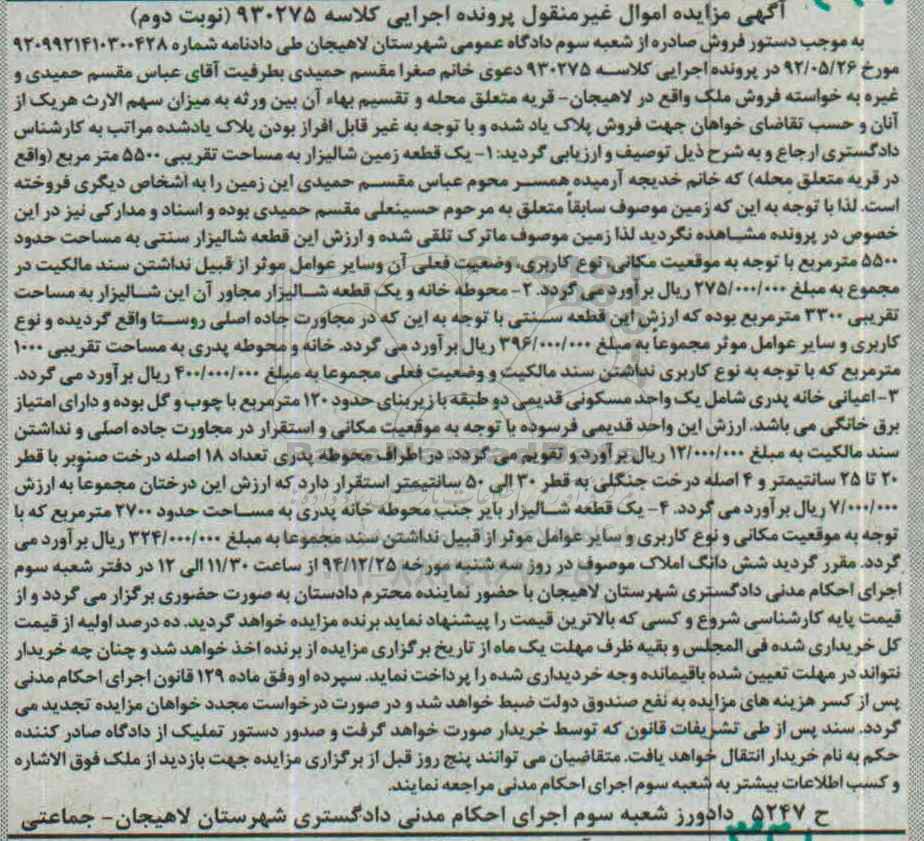 آگهی مزایده اموال غیرمنقول پرونده اجرایی کلاسه ۹۳۰۲۷۵ (نوبت دوم)
به موجب دستور فروش صادره از شعبه سوم دادگاه عمومی شهرستان لاهیجان طی دادنامه شماره ۹۲۰۹۹۲۱۴۱۰۳۰۰۴۲۸
مورخ ۹۲/۰۵/۲۶ در پرونده اجرایی کلاسه ۹۳۰۲۷۵ دعوی خانم صغرا مقسم حمیدی بطرفیت آقای عباس مقسم حمیدی و
غیره به خواسته فروش ملک واقع در لاهیجان- قریه متعلق محله و تقسیم بهاء آن بین ورثه به میزان سهم الارث هریک از
آنان و حسب تقاضای خواهان جهت فروش پلاک یاد شده و با توجه به غیر قابل افراز بودن پلاک یادشده مراتب به کارشناس
دادگستری ارجاع و به شرح ذیل توصیف و ارزیابی گردید: ۱- یک قطعه زمین شالیزار به مساحت تقریبی ۵۵۰۰ متر مربع (واقع
در قریه متعلق محله) که خانم خدیجه آرمیده همسر محوم عباس مقسم حمیدی این زمین را به اشخاص دیگری فروخته
است. لذا با توجه به این که زمین موصوف سابقاً متعلق به مرحوم حسینعلی مقسم حمیدی بوده و اسناد و مدارکی نیز در این
خصوص در پرونده مشاهده نگردید لذا زمین موصوف ماترک تلقی شده و ارزش این قطعه شالیزار سنتی به مساحت حدود
۵۵۰۰ مترمربع با توجه به موقعیت مکانی، نوع کاربری، وضعیت فعلی آن وسایر عوامل موثر از قبیل نداشتن سند مالکیت در
مجموع به مبلغ ۲۷۵/۰۰۰/۰۰۰ ریال برآورد می گردد. ۲- محوطه خانه و یک قطعه شالیزار مجاور آن این شالیزار به مساحت
تقریبی ۳۳۰۰ مترمربع بوده که ارزش این قطعه سنتی با توجه به این که در مجاورت جاده اصلی روستا واقع گردیده و نوع
کاربری و سایر عوامل موثر مجموعاً به مبلغ ۳۹۶/۰۰۰/۰۰۰ ریال برآورد می گردد. خانه و محوطه پدری به مساحت تقریبی ۱۰۰۰
مترمربع که با توجه به نوع کاربری نداشتن سند مالکیت و وضعیت فعلی مجموعا به مبلغ ۴۰۰/۰۰۰/۰۰۰ ریال برآورد می گردد.
۳- اعیانی خانه پدری شامل یک واحد مسکونی قدیمی دو طبقه با زیربنای حدود ۱۲۰ مترمربع با چوب و گل بوده و دارای امتیاز
برق خانگی می باشد. ارزش این واحد قدیمی فرسوده با توجه به موقعیت مکانی و استقرار در مجاورت جاده اصلی و نداشتن
سند مالکیت به مبلغ ۱۲/۰۰۰/۰۰۰ ریال برآورد و تقویم می گردد. در اطراف محوطه پدری تعداد ۱۸ اصله درخت صنوبر با قطر
۲۰ تا ۲۵ سانتیمتر و ۴ اصله درخت جنگلی به قطر ۳۰ الی ۵۰ سانتیمتر استقرار دارد که ارزش این درختان مجموعاً به ارزش
۷/۰۰۰/۰۰۰ ریال برآورد می گردد. ۴- یک قطعه شالیزار بایر جنب محوطه خانه پدری به مساحت حدود ۲۷۰۰ مترمربع که با
توجه به موقعیت مکانی و نوع کاربری و سایر عوامل موثر از قبیل نداشتن سند مجموعا به مبلغ ۳۲۴/۰۰۰/۰۰۰ ریال برآورد می
گردد. مقرر گردید شش دانگ املاک موصوف در روز سه شنبه مورخه ۹۴/۱۲/۲۵ از ساعت ۱۱/۳۰ الی ۱۲ در دفتر شعبه سوم
اجرای احکام مدنی دادگستری شهرستان لاهیجان با حضور نماینده محترم دادستان به صورت حضوری برگزار می گردد و از
قیمت پایه کارشناسی شروع و کسی که بالاترین قیمت را پیشنهاد نماید برنده مزایده خواهد گردید. ده درصد اولیه از قیمت
کل خریداری شده فی المجلس و بقیه ظرف مهلت یک ماه از تاریخ برگزاری مزایده از برنده اخذ خواهد شد و چنان چه خریدار
نتواند در مهلت تعیین شده باقیمانده وجه خردیداری شده را پرداخت نماید. سپرده او وفق ماده ۱۲۹ قانون اجرای احکام مدنی
پس از کسر هزینه های مزایده به نفع صندوق دولت ضبط خواهد شد و در صورت درخواست مجدد خواهان مزایده تجدید می
گردد. سند پس از طی تشریفات قانون که توسط خریدار صورت خواهد گرفت و صدور دستور تملیک از دادگاه صادر کننده
حکم به نام خریدار انتقال خواهد یافت. متقاضیان می توانند پنج روز قبل از برگزاری مزایده جهت بازدید از ملک فوق الاشاره
و کسب اطلاعات بیشتر به شعبه سوم اجرای احکام مدنی مراجعه نمایند.
ح ۵۲۴۷ دادورز شعبه سوم اجرای احکام مدنی دادگستری شهرستان لاهیجان- جماعتی